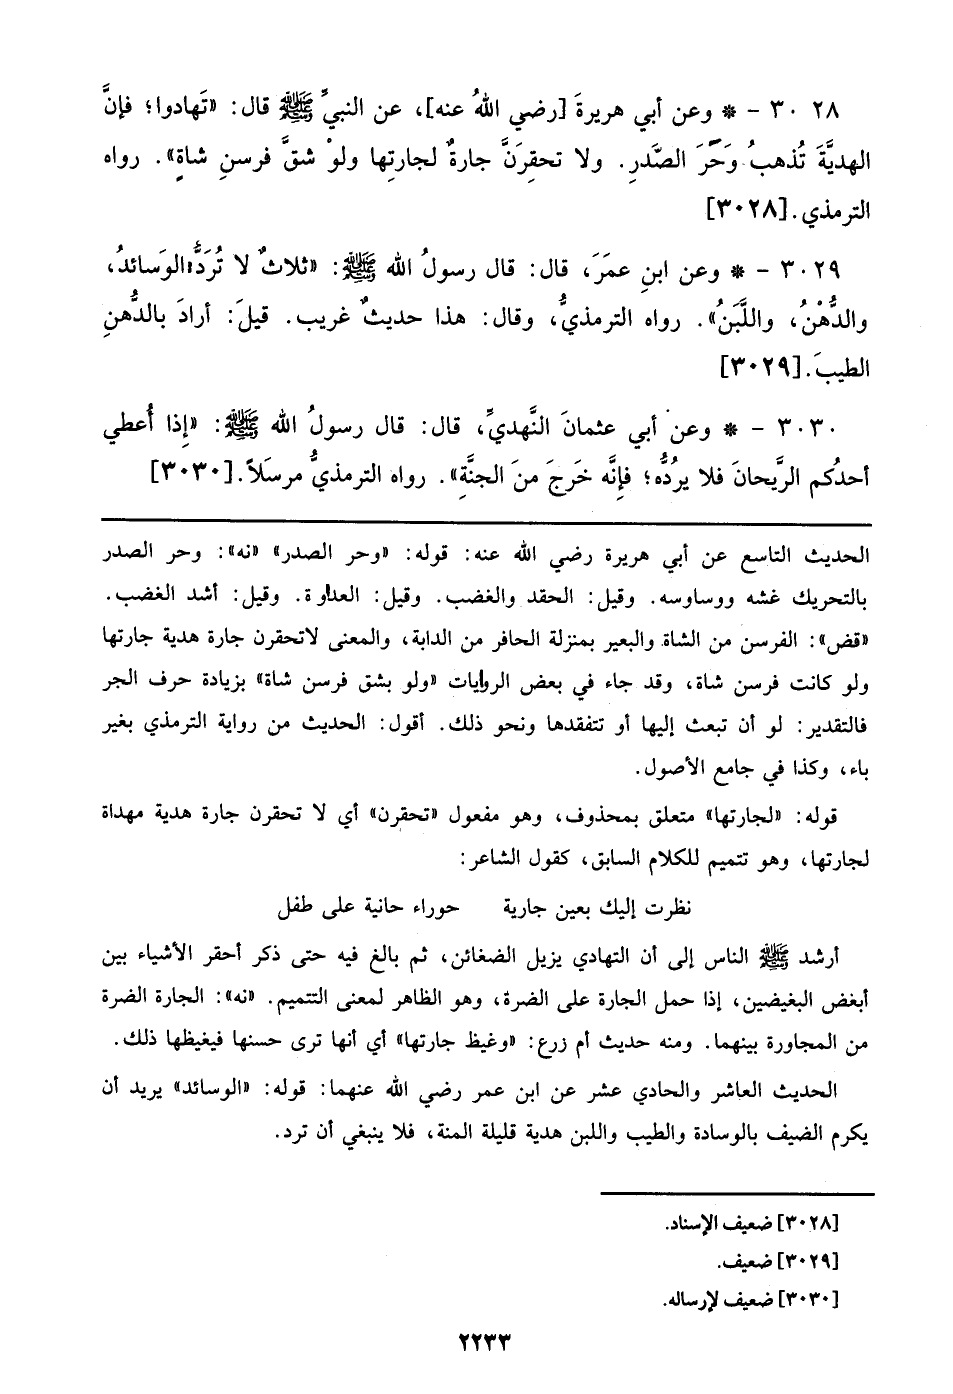 ٣٠٢٨ – * وعن أبي هريرةَ [رضي اللهُ عنه]، عن النبيِّ ﷺ قال: «تَهادوا؛ فإنَّ
الهديَّةَ تُذهبُ وَحَرَ الصَّدرِ. ولا تحقِرَنَّ جارةٌ لجارتِها ولوْ شقَّ فرسنِ شاةٍ». رواه
الترمذي. [٣٠٢٨]
٣٠٢٩ – * وعن ابنِ عمَرَ، قال: قال رسولُ الله ﷺ: «ثلاثٌ لا تُرَدُّ: الوَسائدُ،
والدُّهْنُ، واللَّبَنُ». رواه الترمذيُّ، وقال: هذا حديثٌ غريب. قيلَ: أرادَ بالدُّهنِ
الطيبَ. [٣٠٢٩]
٣٠٣٠ – * وعن أبي عثمانَ النَّهديِّ، قال: قال رسولُ الله ﷺ: «إِذا أُعطي
أحدُكم الرَّيحانَ فلا يردُّه؛ فإِنَّه خَرجَ منَ الجنَّةِ». رواه الترمذيُّ مرسَلاً. [٣٠٣٠]
الحديث التاسع عن أبي هريرة رضي الله عنه: قوله: «وحر الصدر» «نه»: وحر الصدر
بالتحريك غشه ووساوسه. وقيل: الحقد والغضب. وقيل: العداوة. وقيل: أشد الغضب.
«قض»: الفرسن من الشاة والبعير بمنزلة الحافر من الدابة، والمعنى لاتحقرن جارة هدية جارتها
ولو كانت فرسن شاة، وقد جاء في بعض الروايات «ولو بشق فرسن شاة» بزيادة حرف الجر
فالتقدير: لو أن تبعث إليها أو تتفقدها ونحو ذلك. أقول: الحديث من رواية الترمذي بغير
باء، وكذا في جامع الأصول.
قوله: «لجارتها» متعلق بمحذوف، وهو مفعول «تحقرن» أي لا تحقرن جارة هدية مهداة
لجارتها، وهو تتميم للكلام السابق، كقول الشاعر:
نظرت إليك بعين جارية حوراء حانية على طفل
أرشد ﷺ الناس إلى أن التهادي يزيل الضغائن، ثم بالغ فيه حتى ذكر أحقر الأشياء بين
أبغض البغيضين، إذا حمل الجارة على الضرة، وهو الظاهر لمعنى التتميم. «نه»: الجارة الضرة
من المجاورة بينهما. ومنه حديث أم زرع: «وغيظ جارتها» أي أنها ترى حسنها فيغيظها ذلك.
الحديث العاشر والحادي عشر عن ابن عمر رضي الله عنهما: قوله: «الوسائد» يريد أن
يكرم الضيف بالوسادة والطيب واللبن هدية قليلة المنة، فلا ينبغي أن ترد.
[٣٠٢٨] ضعيف الإسناد.
[٣٠٢٩] ضعيف.
[٣٠٣٠] ضعيف لإرساله.
٢٢٣٣